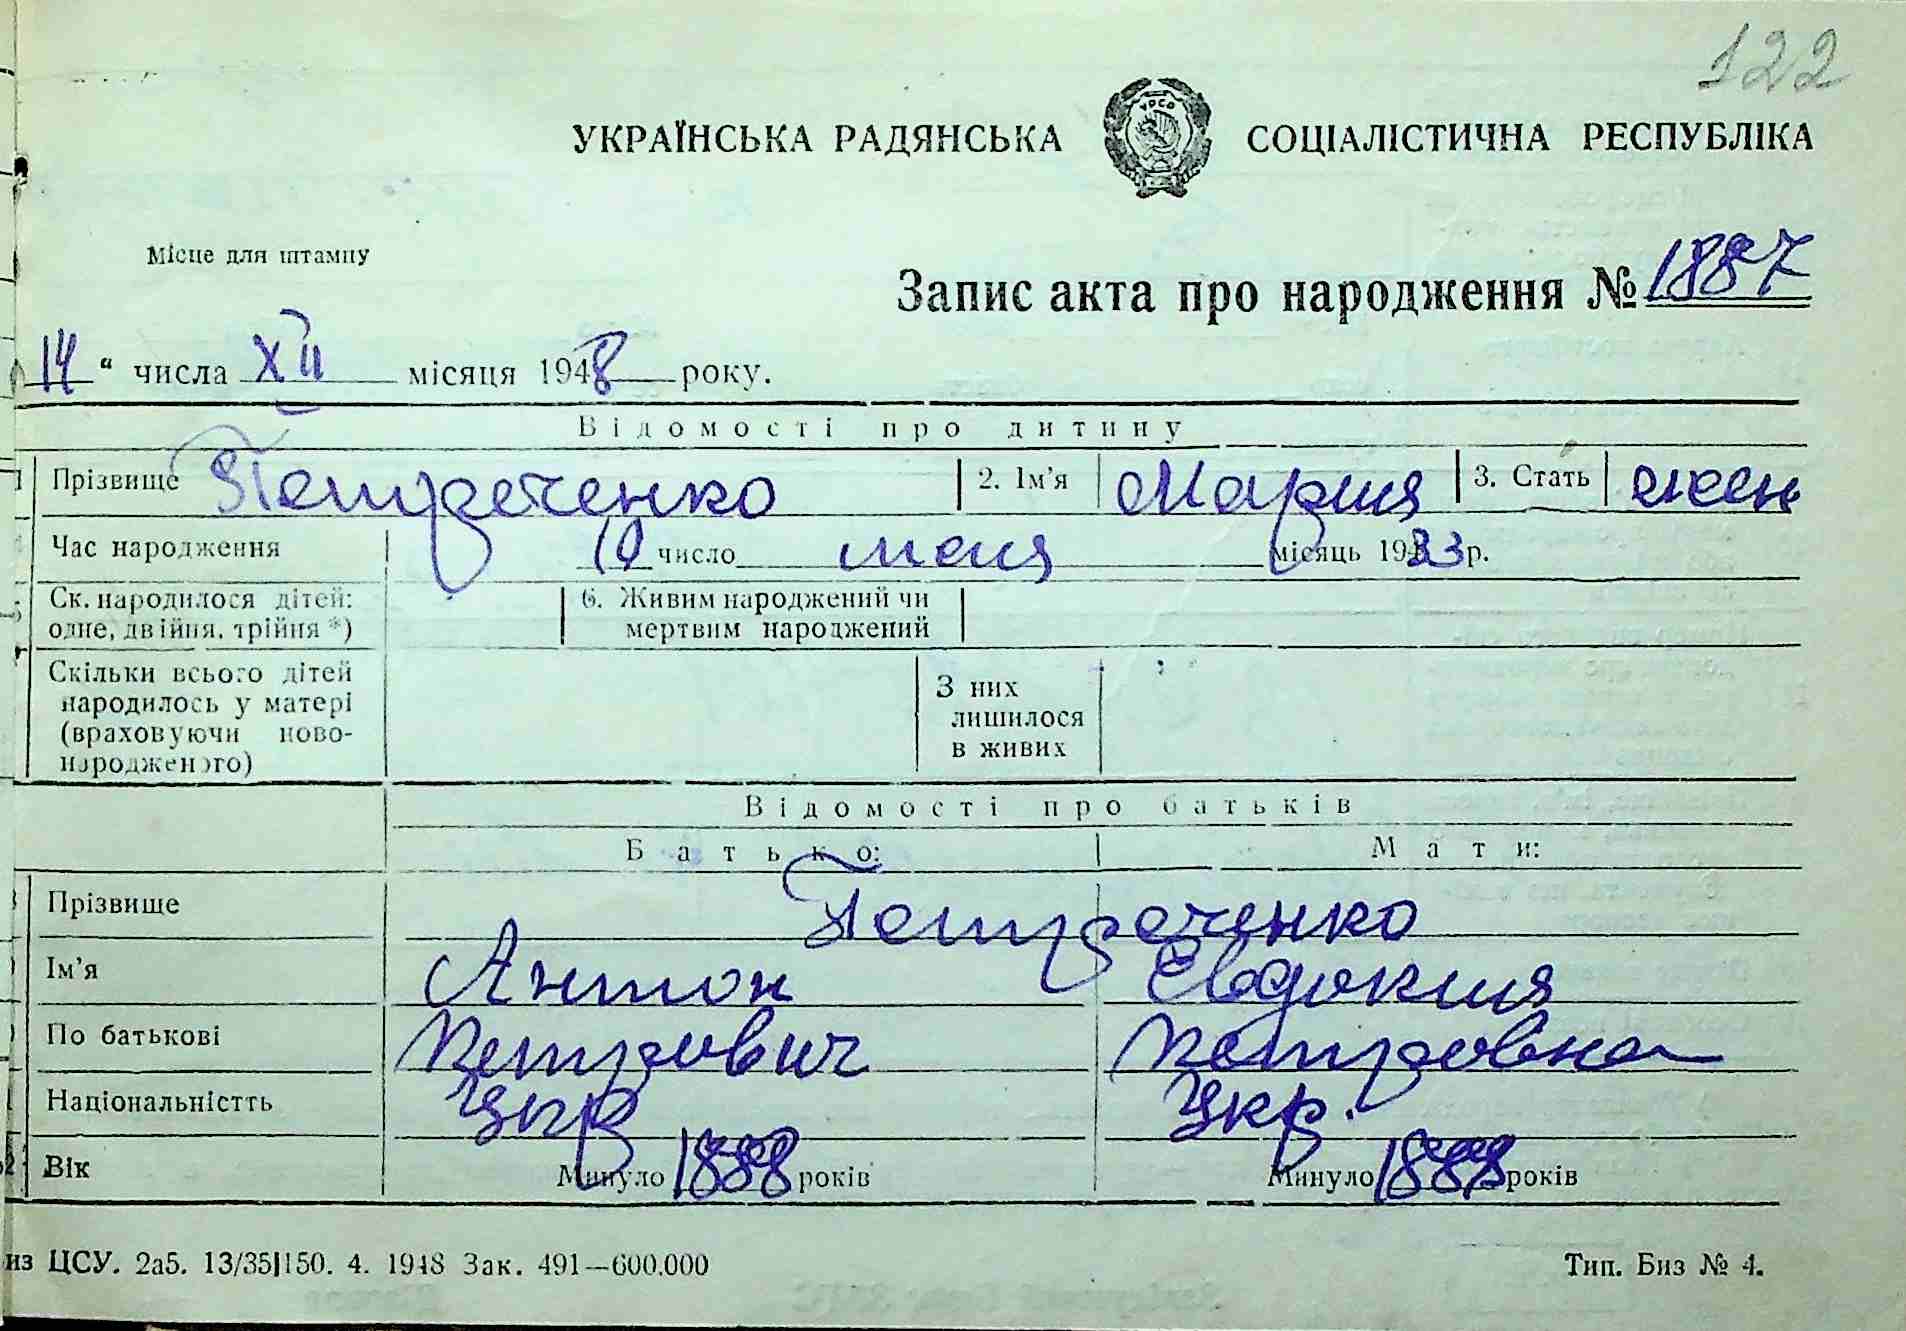 122
УКРАЇНСЬКА РАДЯНСЬКА СОЦІАЛІСТИЧНА РЕСПУБЛІКА
УРСР
Місце для штампу
Запис акта про народження № 1887
14 “ числа XII місяця 1948 року.
Відомості про дитину
1 Прізвище Петреченко 2. Ім'я Мария 3. Стать жен
Час народження 10 число мая місяць 1933 р.
Ск. народилося дітей: одне, двійня, трійня *) 6. Живим народжений чи мертвим народжений
Скільки всього дітей народилось у матері (враховуючи ново-народженого) З них лишилося в живих
Відомості про батьків
Батько: Мати:
Прізвище Петреченко
Ім'я Антон Евдокия
По батькові Петрович Петровна
Національністть Укр Укр.
Вік Минуло 1888 років Минуло 1888 років
из ЦСУ. 2а5. 13/35|150. 4. 1948 Зак. 491—600.000 Тип. Биз № 4.